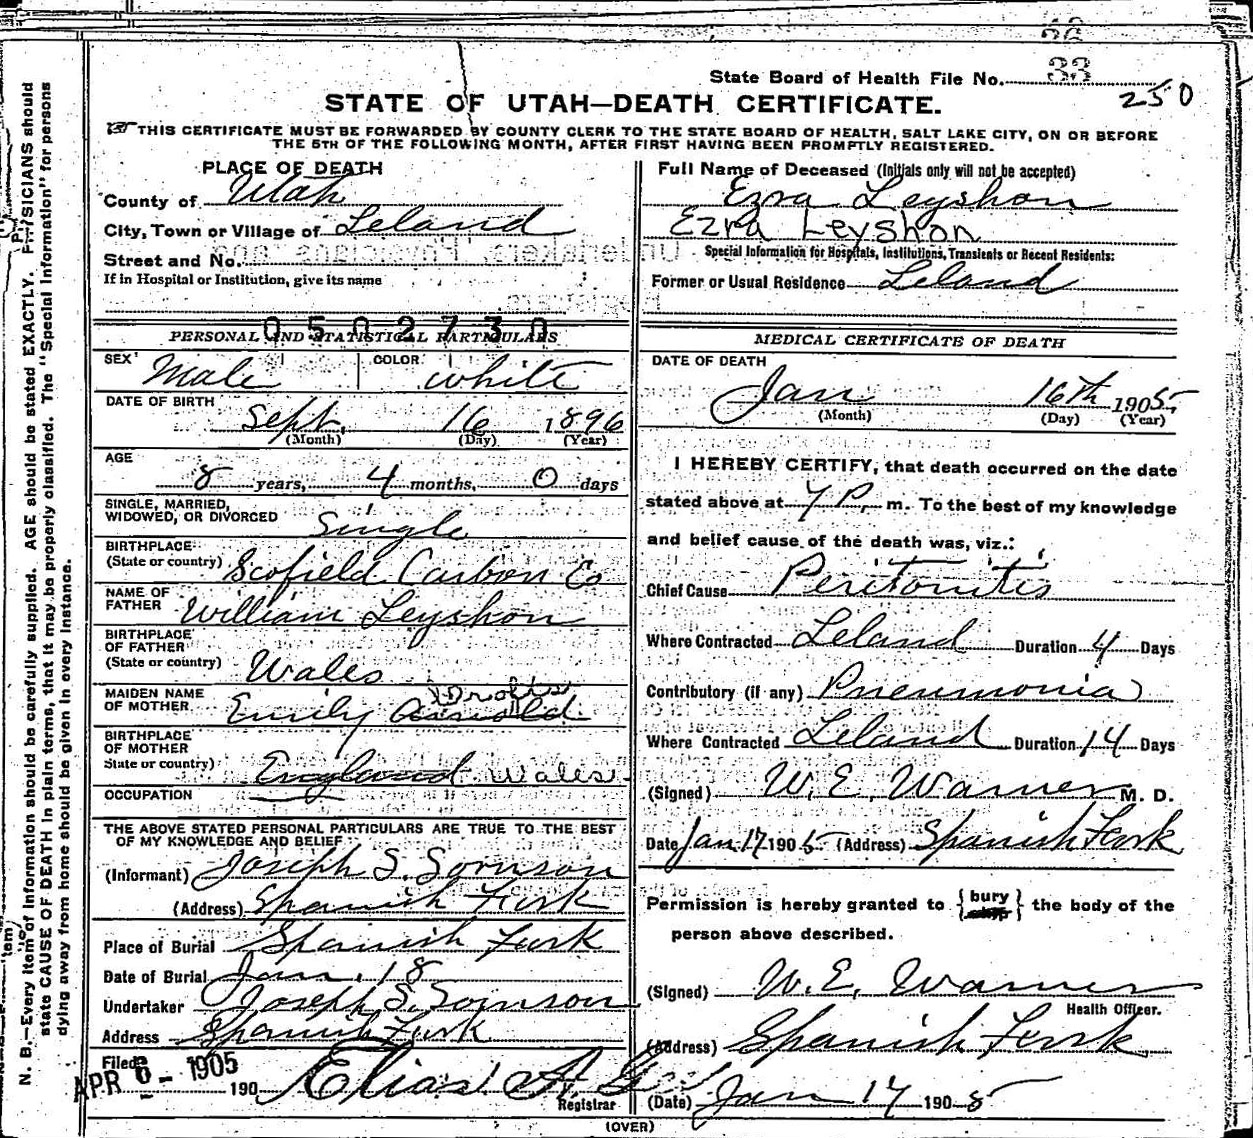 State Board of Health File No. 33
250
STATE OF UTAH—DEATH CERTIFICATE.
THIS CERTIFICATE MUST BE FORWARDED BY COUNTY CLERK TO THE STATE BOARD OF HEALTH, SALT LAKE CITY, ON OR BEFORE
THE 5TH OF THE FOLLOWING MONTH, AFTER FIRST HAVING BEEN PROMPTLY REGISTERED.
PLACE OF DEATH
County of Utah
City, Town or Village of Leland
Street and No.
If in Hospital or Institution, give its name
0502730
PERSONAL AND STATISTICAL PARTICULARS
SEX Male COLOR white
DATE OF BIRTH
Sept. 16 1896
(Month) (Day) (Year)
AGE
8 years, 4 months, 0 days
SINGLE, MARRIED,
WIDOWED, OR DIVORCED Single
BIRTHPLACE
(State or country) Scofield Carbon Co
NAME OF
FATHER William Leyshon
BIRTHPLACE
OF FATHER
(State or country) Wales
MAIDEN NAME
OF MOTHER Emily Arnold
BIRTHPLACE
OF MOTHER
State or country) England Wales
OCCUPATION
THE ABOVE STATED PERSONAL PARTICULARS ARE TRUE TO THE BEST
OF MY KNOWLEDGE AND BELIEF
(Informant) Joseph S. Sornson
(Address) Spanish Fork
Place of Burial Spanish Fork
Date of Burial Jan. 18
Undertaker Joseph S. Sornson
Address Spanish Fork
Filed APR 6 - 1905 190
Elias A.
Registrar
Full Name of Deceased (Initials only will not be accepted)
Ezra Leyshon
Ezra Leyshon
Special Information for Hospitals, Institutions, Transients or Recent Residents:
Former or Usual Residence Leland
MEDICAL CERTIFICATE OF DEATH
DATE OF DEATH
Jan 16th 1905
(Month) (Day) (Year)
I HEREBY CERTIFY, that death occurred on the date
stated above at 7 P. m. To the best of my knowledge
and belief cause of the death was, viz.:
Chief Cause Peritonitis
Where Contracted Leland Duration 4 Days
Contributory (if any) Pneumonia
Where Contracted Leland Duration 14 Days
(Signed) W. E. Warner M. D.
Date Jan 17 1905 (Address) Spanish Fork
Permission is hereby granted to {bury} the body of the
person above described.
(Signed) W. E. Warner
Health Officer.
(Address) Spanish Fork
(Date) Jan 17 1905
(OVER)
N. B.—Every item of Information should be carefully supplied. AGE should be stated EXACTLY. PHYSICIANS should
state CAUSE OF DEATH in plain terms, that it may be properly classified. The "Special Information" for persons
dying away from home should be given in every instance.